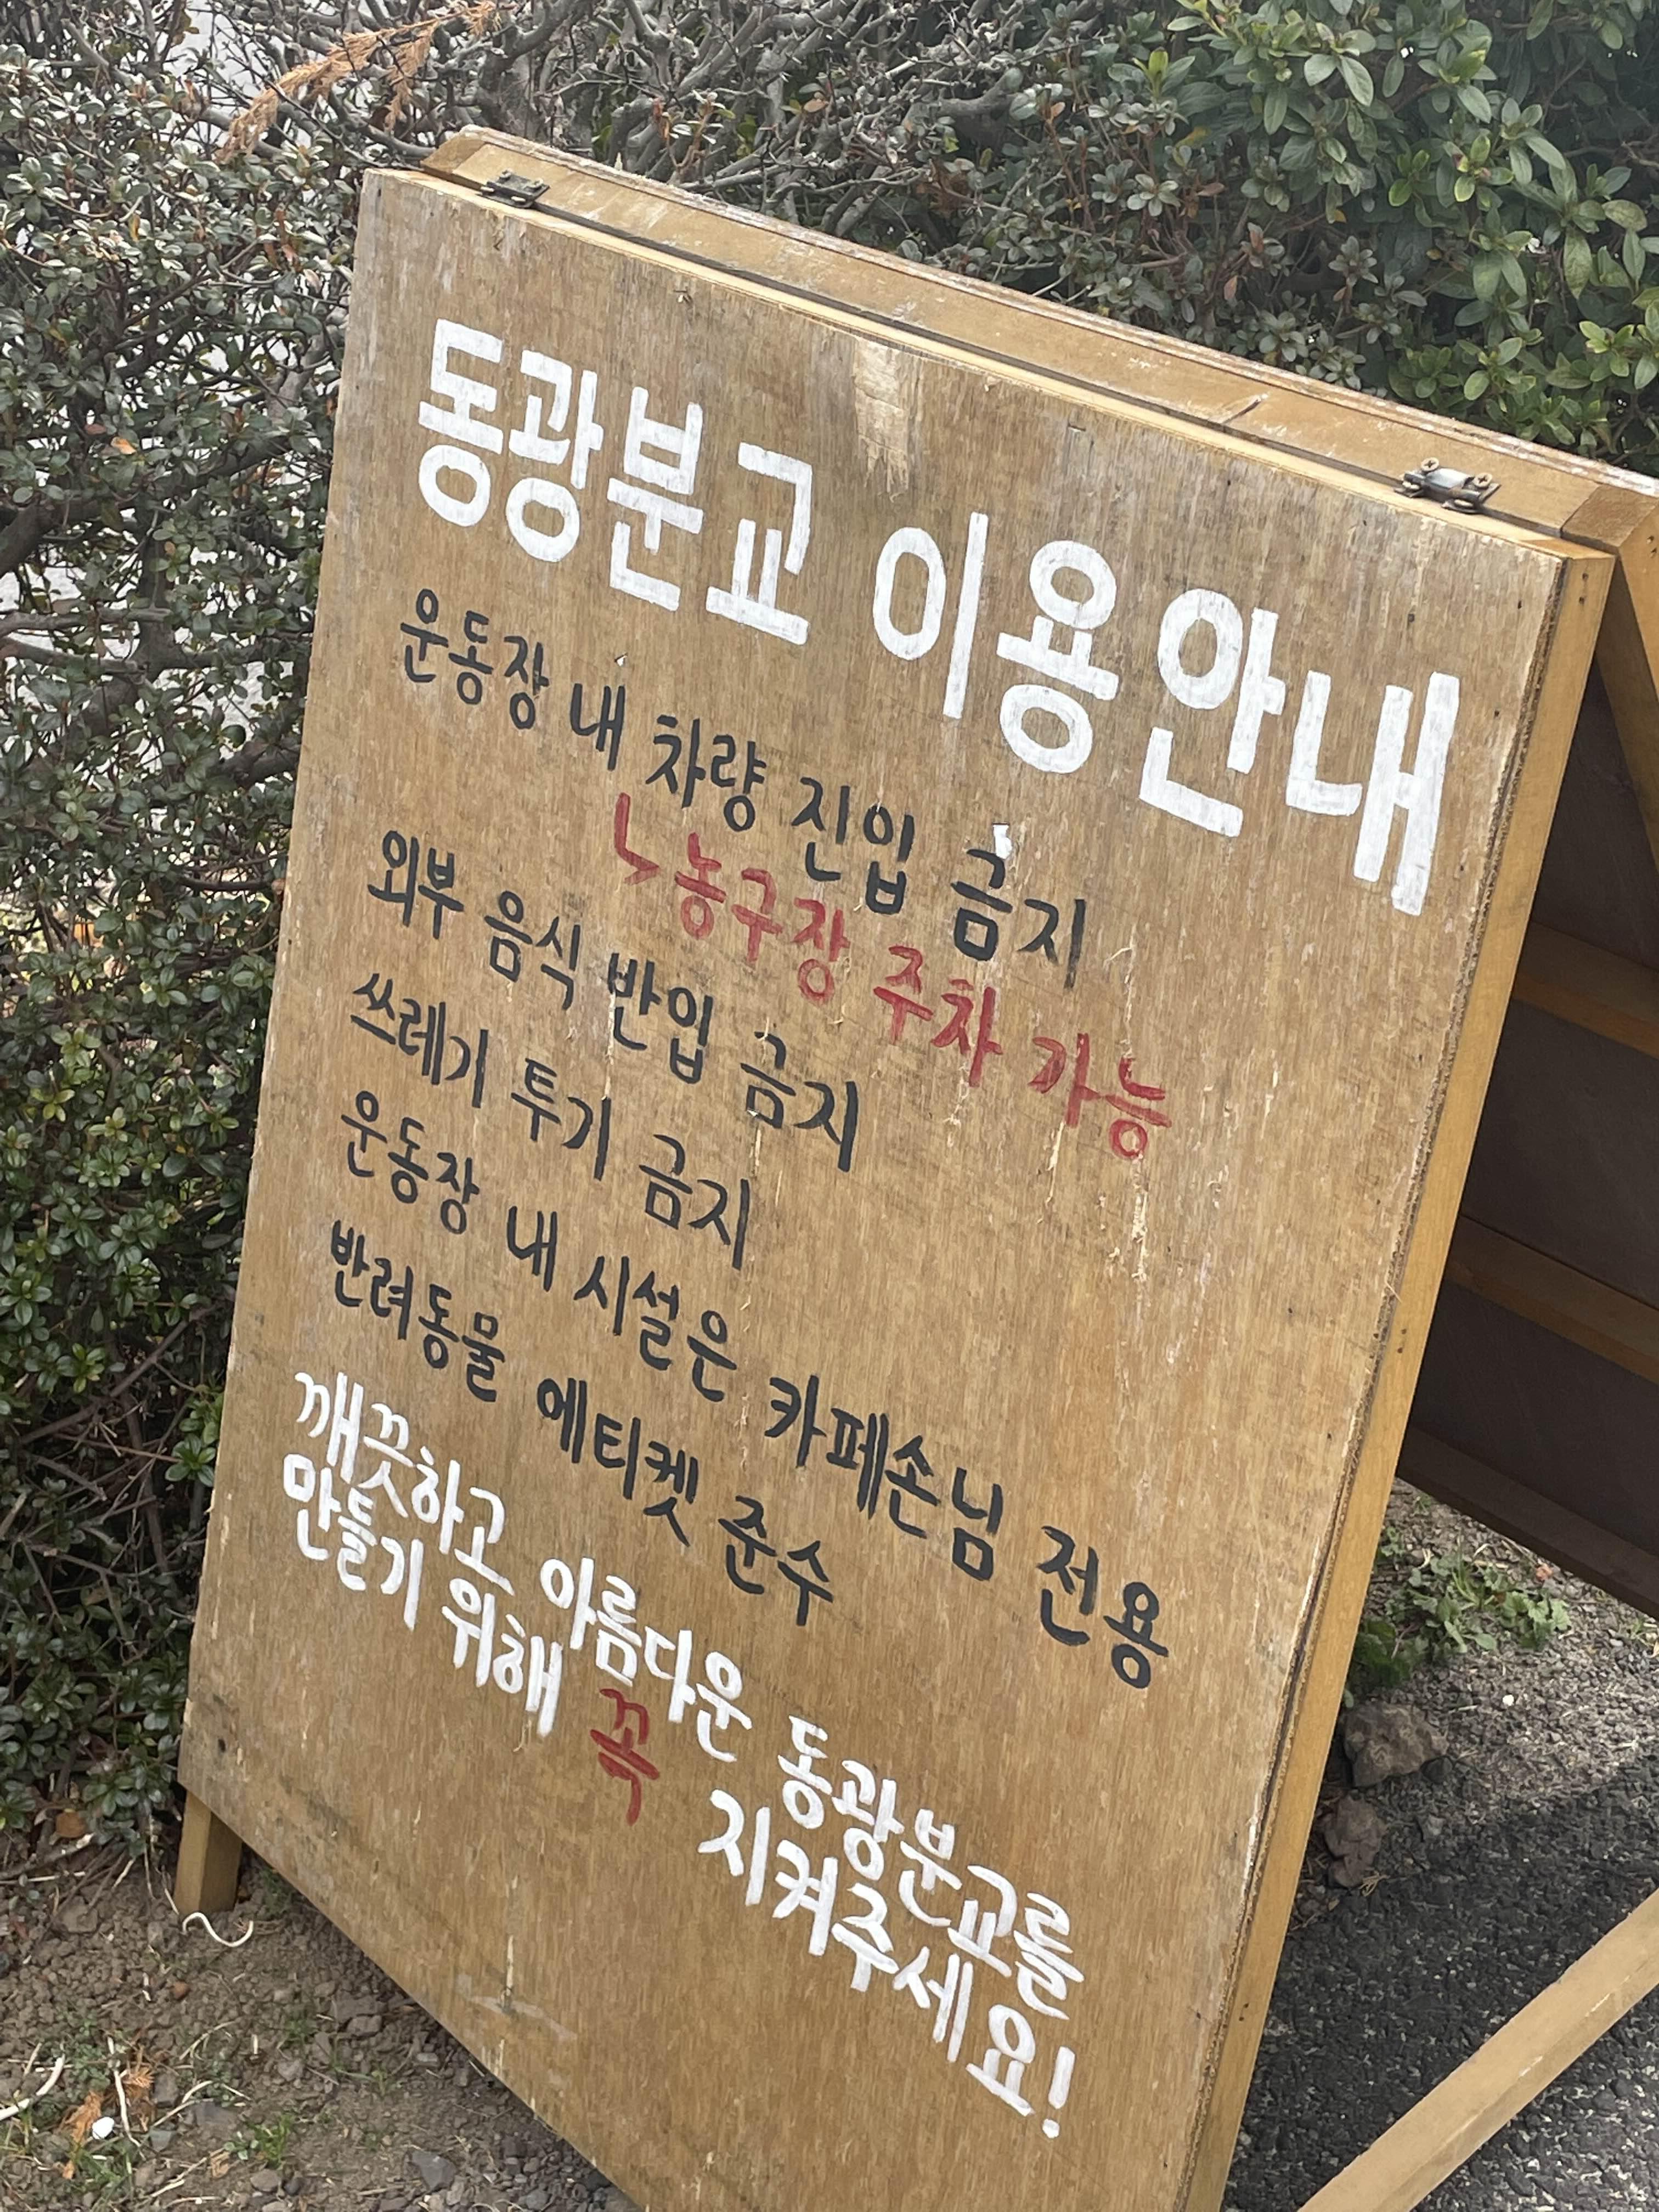 동광분교 이용안내
운동장 내 차량 진입 금지
↳농구장 주차 가능
외부 음식 반입 금지
쓰레기 투기 금지
운동장 내 시설은 카페손님 전용
반려동물 에티켓 준수
깨끗하고 아름다운 동광분교를
만들기 위해 꼭 지켜주세요!